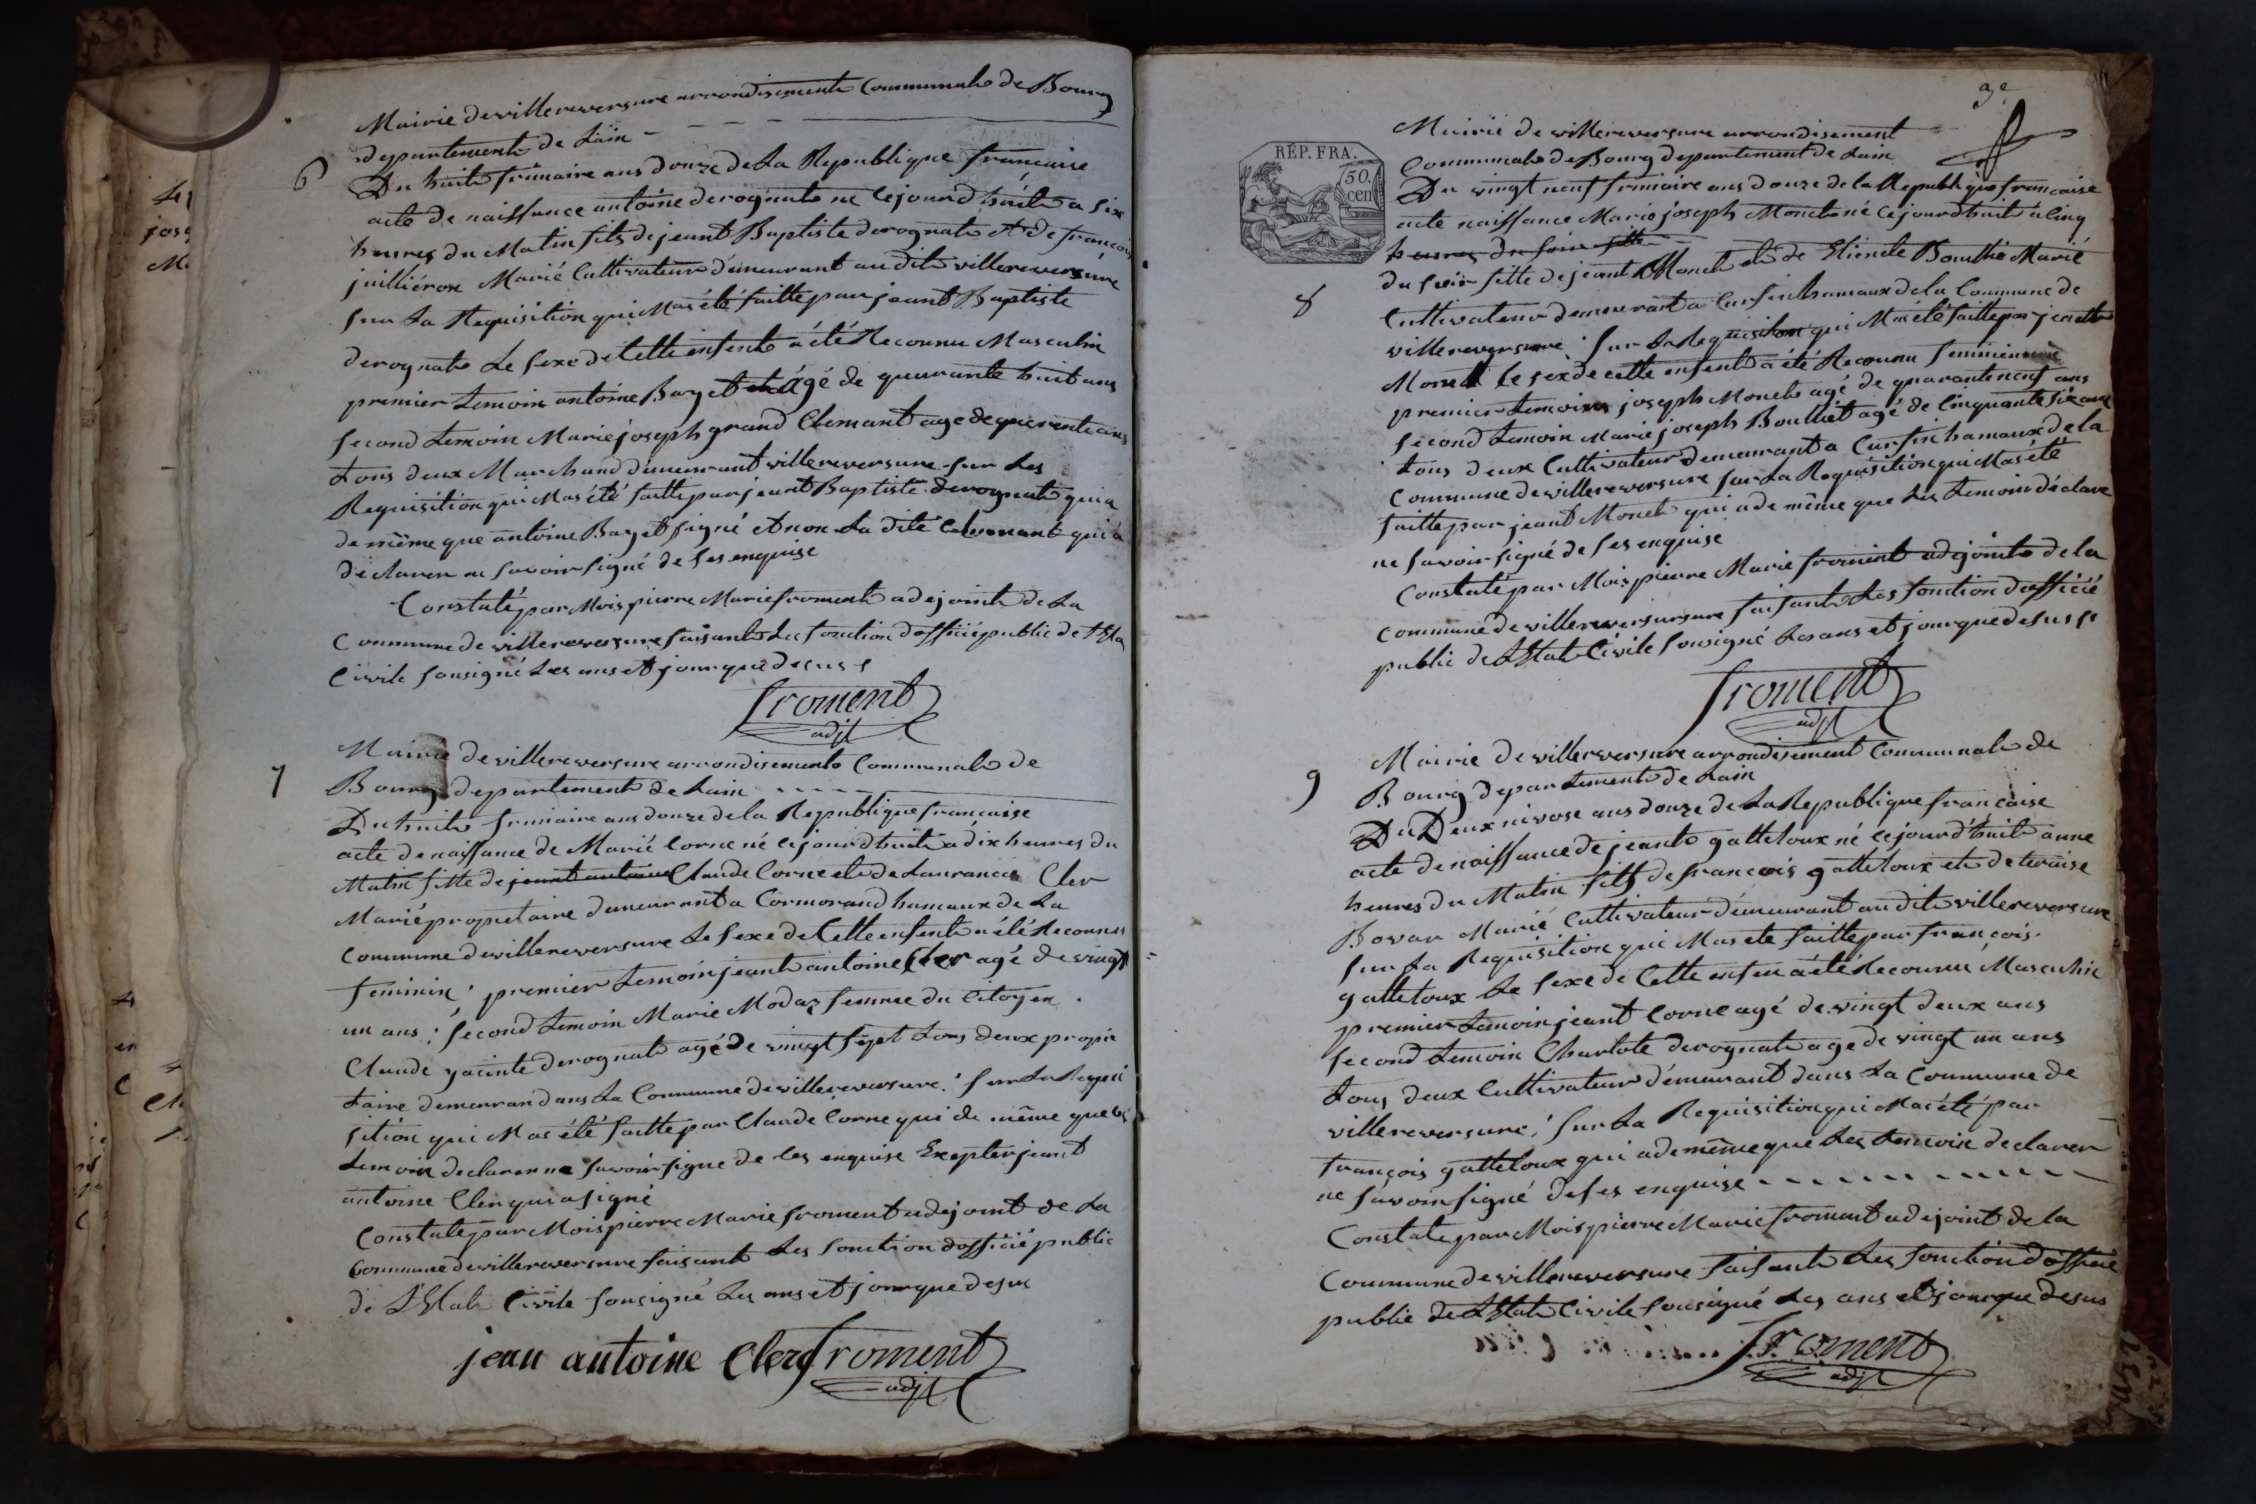 Mairie de villereversure arrondisement Communale de Bourg
departement de Lain
6
Du huite frimaire ans douze de La Republique francaise
acte de naissance antoine derognate ne cejourdhuite a six
heures du Matin fils de jeant Baptiste derognate et de francois
juilliéron Marié Cultivateur demeurant audite villereversure
sur La Requisition qui Mas été faitte par jeant Baptiste
derognate Le sexe de Cette enfente a été Reconnu Masculin
premier temoin antoine Bayet agé de quarante huit ans
second temoin Marie joseph grand Clemant age de querente ans
tous deux Marchand demeurant villereversure sur Les
Requisition qui Mas été faitte par jeant Baptiste derognate qui a
de même que antoine Bayet signé et non La dite qui a
déclarer ne savoir signé de ses enquise
Constaté par Mois pierre Marie froment adejointe de La
Commune de villereversure faisante Les fonction dofficié public de
Civile sousigné Les ans et jour que desus
froment
adjt
7
Mairie de villereversure arrondisemente Communale de
Bourg departement de Lain
Du huite frimaire ans douze de la Republique francaise
acte de naissance de Marié Corne né cejourdhuite a dix heures du
Matin fille de jeant antoine Claude Corne et de Laurancie Cler
Marié propietaire demeurant a Cormorand hameaux de La
Commune de villereversure Le sexe de Cette enfente a été Reconnu
feminin premier temoin jeant antoine Cler agé de vingt
un ans second temoin Marie Modaz femme du Citoyen
Claude yacinte derognate agé de vingt sept tous deux propie
taire demeuran dans La Commune de villereversure sur La Requi
sition qui Mas été faitte par Claude Corne qui de même que les
temoin declaren ne savoir signe de les enquise Exepter jeant
antoine Cler qui a signé
Constate par Mois pierre Marie froment adejoint de La
Commune de villereversure faisant Les fonction dofficié public
de L'Etate Civile sousigné Les ans et jour que desus
jean antoine Clerc froment
adjt
3e
RÉP. FRA.
50.
cen
Mairie de villereversure arrondisement
Communale de Bourg departement de Lain
Du vingt neuf frimaire ans douze de la Republique francaise
acte naissance Marie joseph Monete né cejourdhuite a Cinq
heures du soir fille
8
du soir fille de jeant Monet et de Etienete Bouthie Marié
Cultivateur demeurant a Cursin hamaux de la Commune de
villereversure sur la Requisition qui Mas été faitte par jeant
Monet le sexe de cette enfente a été Reconnu
premier temoin joseph Monet agé de quarante neuf ans
second temoin Marie joseph Bouthiet agé de Cinquante six ans
tous deux Cultivateur demeurant a Cursin hamaux de la
Commune de villereversure sur La Requisition qui Mas été
faitte par jeant Monet qui a de même que Les temoin déclare
ne savoir signé de ses enquise
Constaté par Mois pierre Marie froment adejointe de la
Commune de villereversursure faisante Les fonction dofficié
public de L'Etate Civile sousigné Les ans et jour que desus
froment
adjt
9
Mairie de villereversure arrondisement Communale de
Bourg departemente de Lain
Du Deux nivose ans douze de La Republique française
acte de naissance de jeante gatteloux né cejourd'huite a une
heures du Matin fils de francois gatteloux et de teraise
Bovar Marié Cultivateur demeurant au dite villereversure
sur La Requisition qui Mas ete faitte par françois
gatteloux Le sexe de Cette enfen a été Reconnu Masculin
premier temoin jeant Corne agé de vingt deux ans
second temoin Charlote derognate age de vingt un ans
tous deux Cultivateur démeurant dans La Commune de
villereversure sur La Requisition qui Mas été par
françois gatteloux qui a de même que Les temoin declarer
ne savoir signé de ses enquise
Constate par Mois pierre Marie froment adejoint de la
Commune de villereversure faisante Les fonction d'officié
public de L'Etate Civile sousigné Les ans et jour que desus
froment
adjt